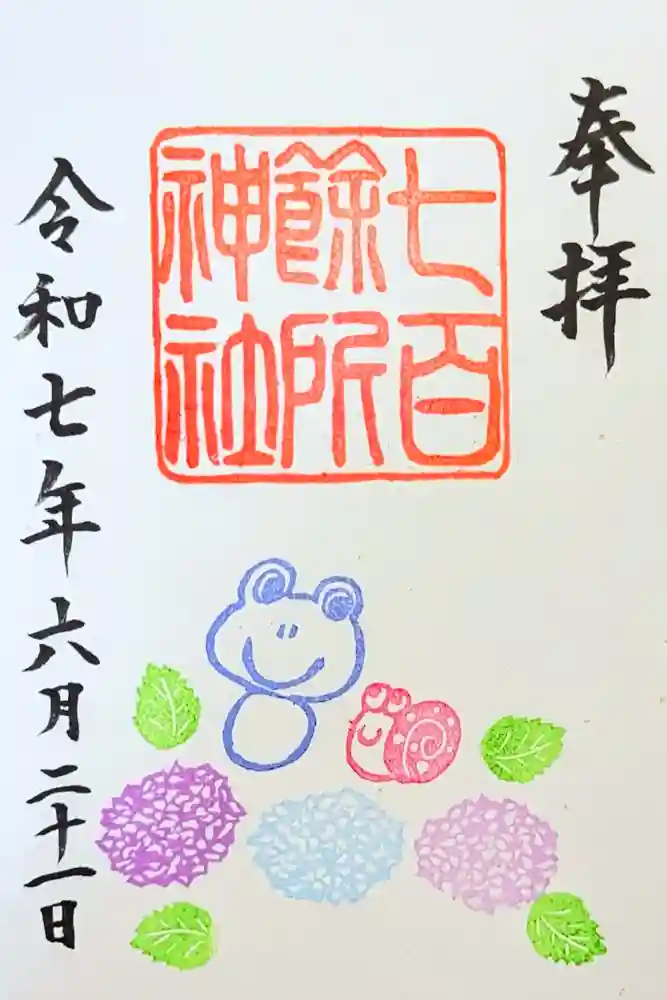 奉拝
七百
餘所
神社
令和七年六月二十一日